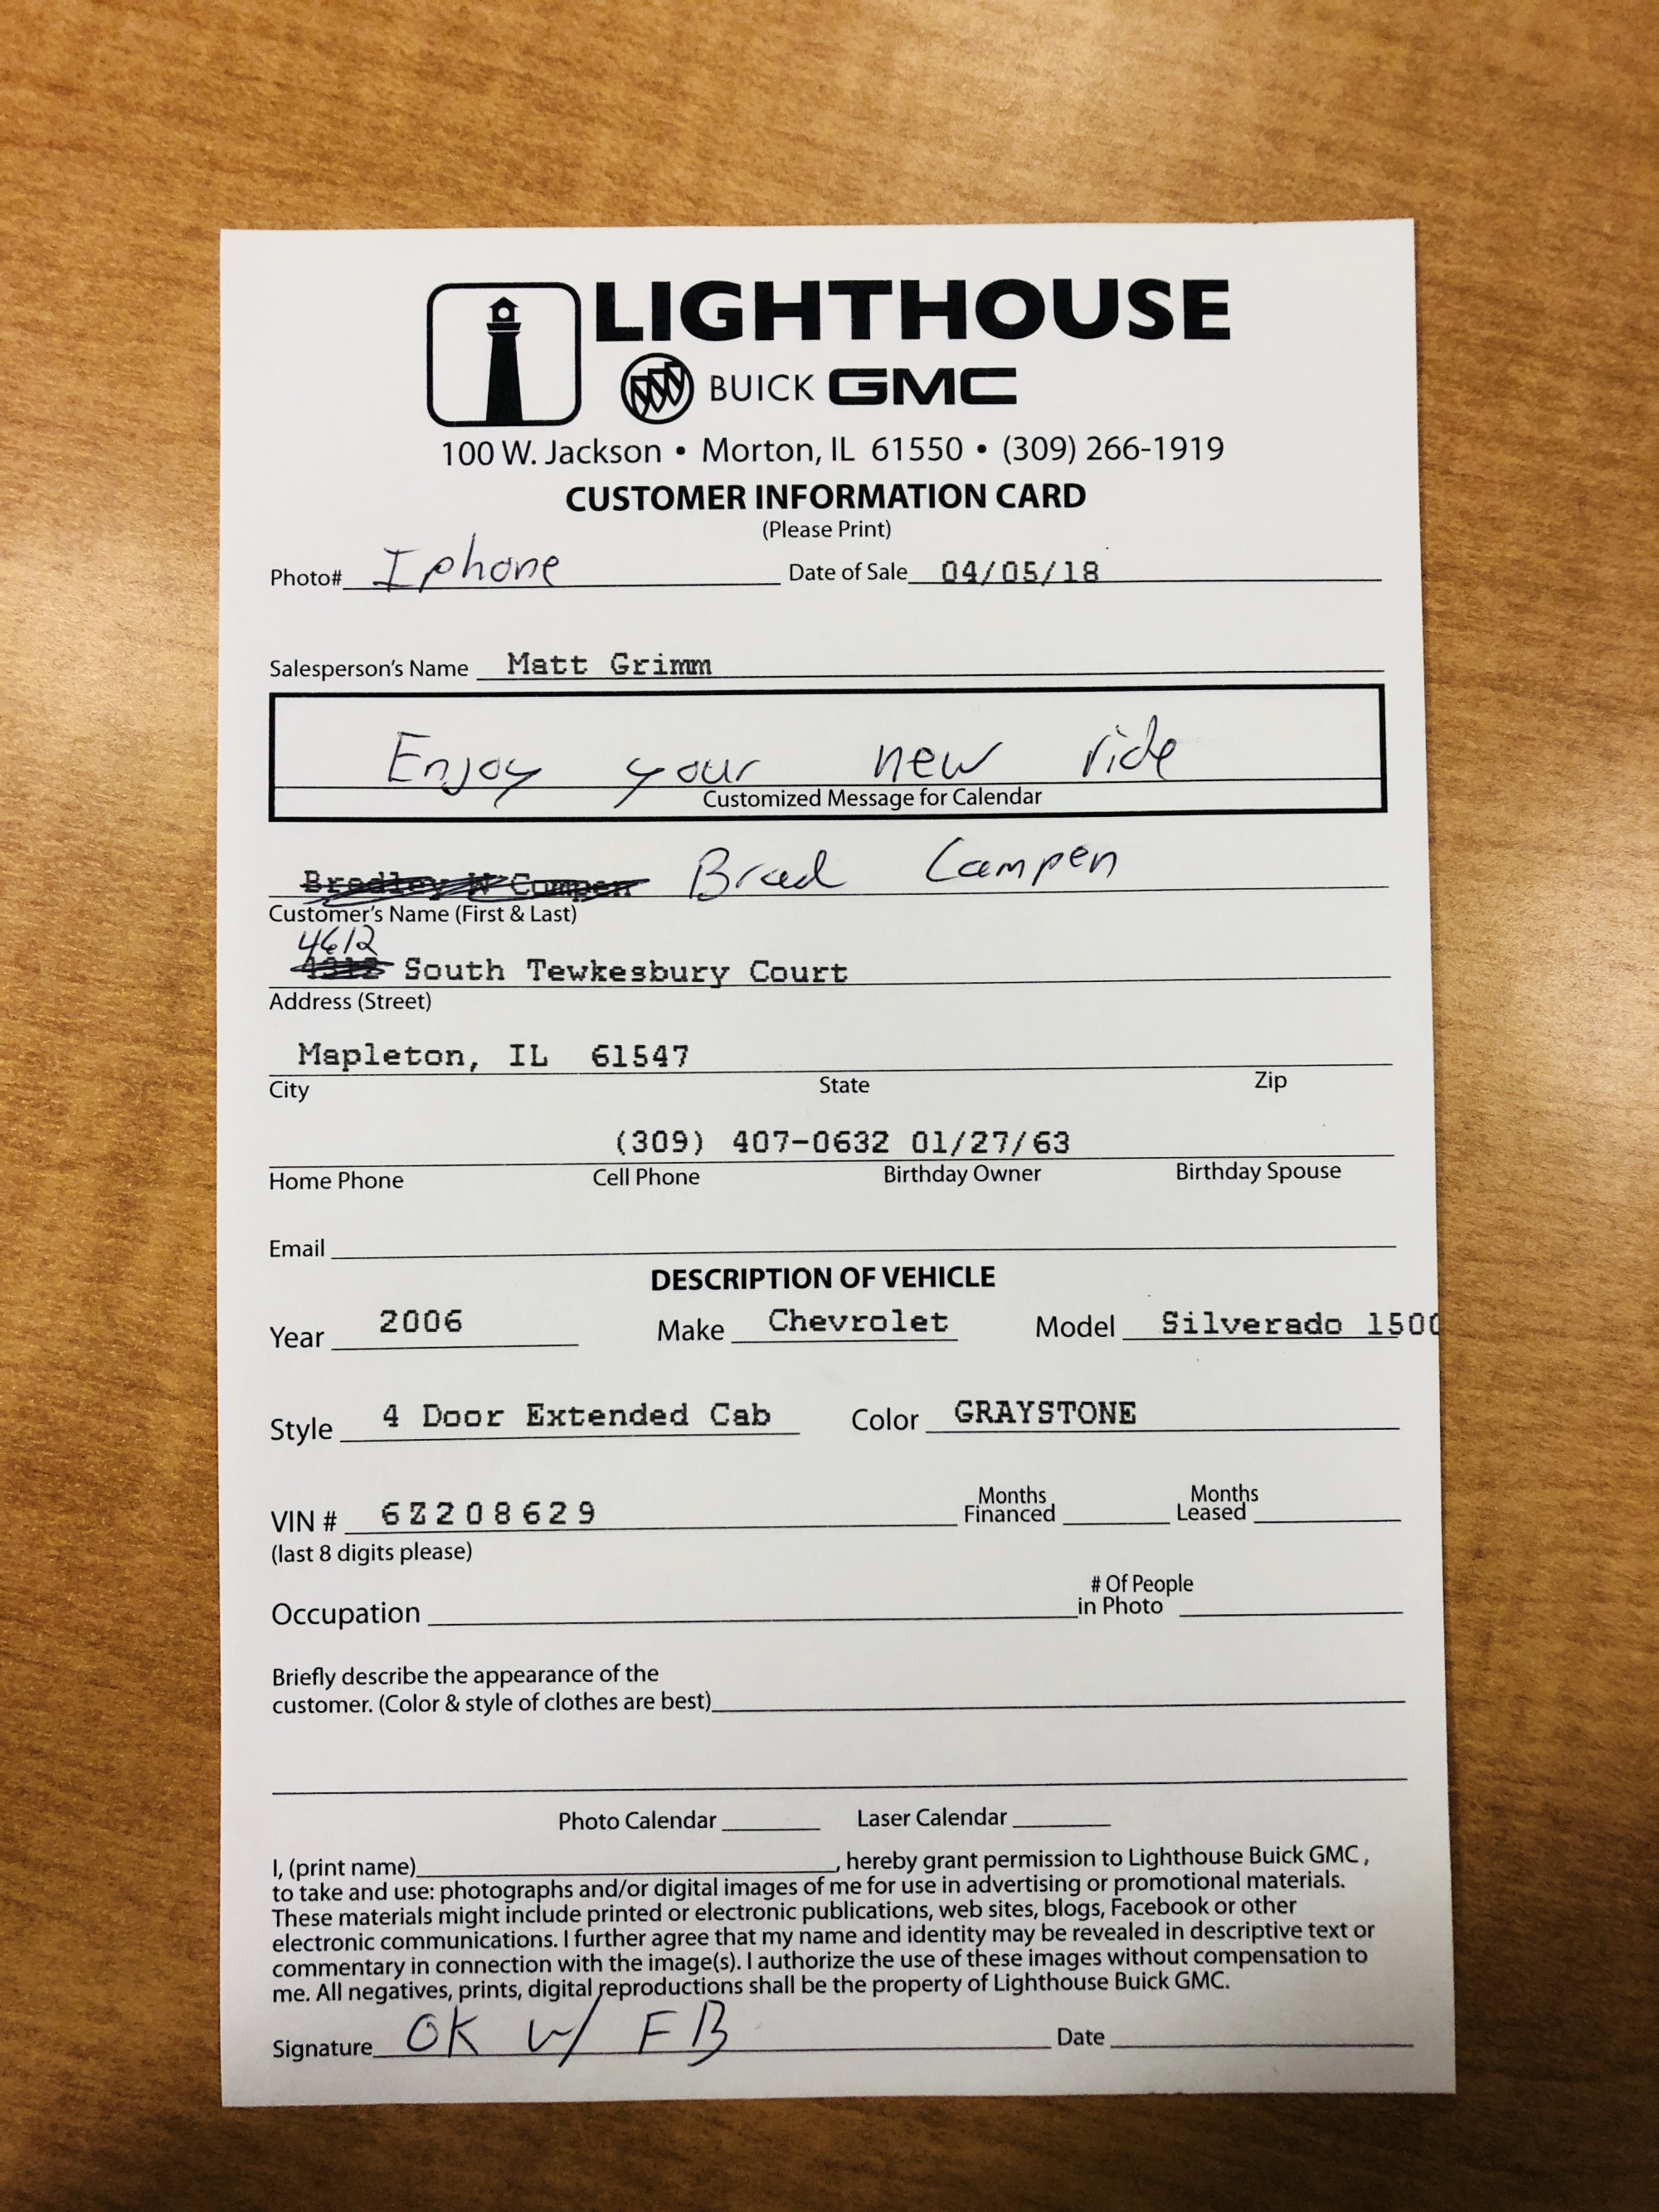 LIGHTHOUSE
BUICK GMC
100 W. Jackson • Morton, IL 61550 • (309) 266-1919
CUSTOMER INFORMATION CARD
(Please Print)
Photo# Iphone Date of Sale 04/05/18
Salesperson's Name Matt Grimm
Enjoy your new ride
Customized Message for Calendar
Bradley W Compen Brad Campen
Customer's Name (First & Last)
4612
South Tewkesbury Court
Address (Street)
Mapleton, IL 61547
City State Zip
(309) 407-0632 01/27/63
Home Phone Cell Phone Birthday Owner Birthday Spouse
Email
DESCRIPTION OF VEHICLE
Year 2006 Make Chevrolet Model Silverado 1500
Style 4 Door Extended Cab Color GRAYSTONE
VIN # 6Z208629 Months Financed Months Leased
(last 8 digits please)
Occupation # Of People in Photo
Briefly describe the appearance of the
customer. (Color & style of clothes are best)
Photo Calendar Laser Calendar
I, (print name) , hereby grant permission to Lighthouse Buick GMC ,
to take and use: photographs and/or digital images of me for use in advertising or promotional materials.
These materials might include printed or electronic publications, web sites, blogs, Facebook or other
electronic communications. I further agree that my name and identity may be revealed in descriptive text or
commentary in connection with the image(s). I authorize the use of these images without compensation to
me. All negatives, prints, digital reproductions shall be the property of Lighthouse Buick GMC.
Signature OK w/ FB Date